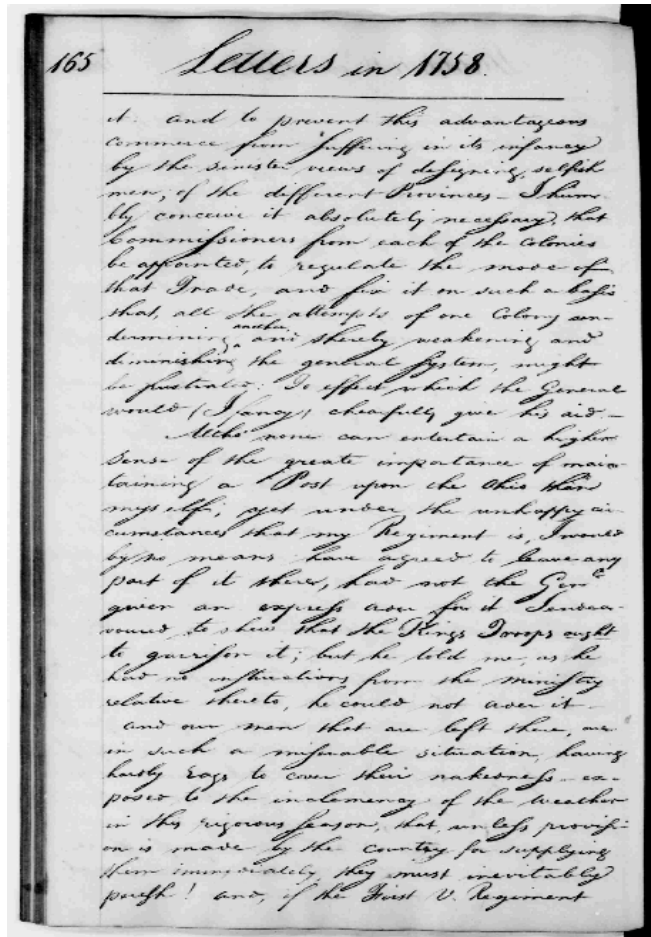 165 Letters in 1758.
it. and to prevent this advantageous
commerce from suffering in its infancy
by the sinister views of designing, selfish
men, of the different Provinces – I hum-
bly conceive it absolutely necessary, that
Commissioners from each of the Colonies
be appointed, to regulate the mode of
that Trade, and fix it on such a basis
that, all the attempts of one Colony un-
dermining another and thereby weakening and
diminishing the general System, might
be frustrated: To effect which the General
would (I fancy) chearfully give his aid. –
Altho' none can entertain a higher
sense of the great importance of main-
taining a Post upon the Ohio than
myself; yet under the unhappy cir-
cumstances that my Regiment is, I would
by no means have agreed to leave any
part of it there, had not the Genl.
given an express order for it I endea-
voured to shew that the Kings Troops ought
to garrison it; but he told me, as he
had no instructions from the ministry
relative thereto, he could not order it
and our men that are left there, are
in such a miserable situation, having
hardly rags to cover their nakedness – ex-
posed to the inclemency of the weather
in this rigorous season, that, unless provisi-
on is made by the country for supplying
them immediately, they must inevitably
perish! and, if the First V. Regiment